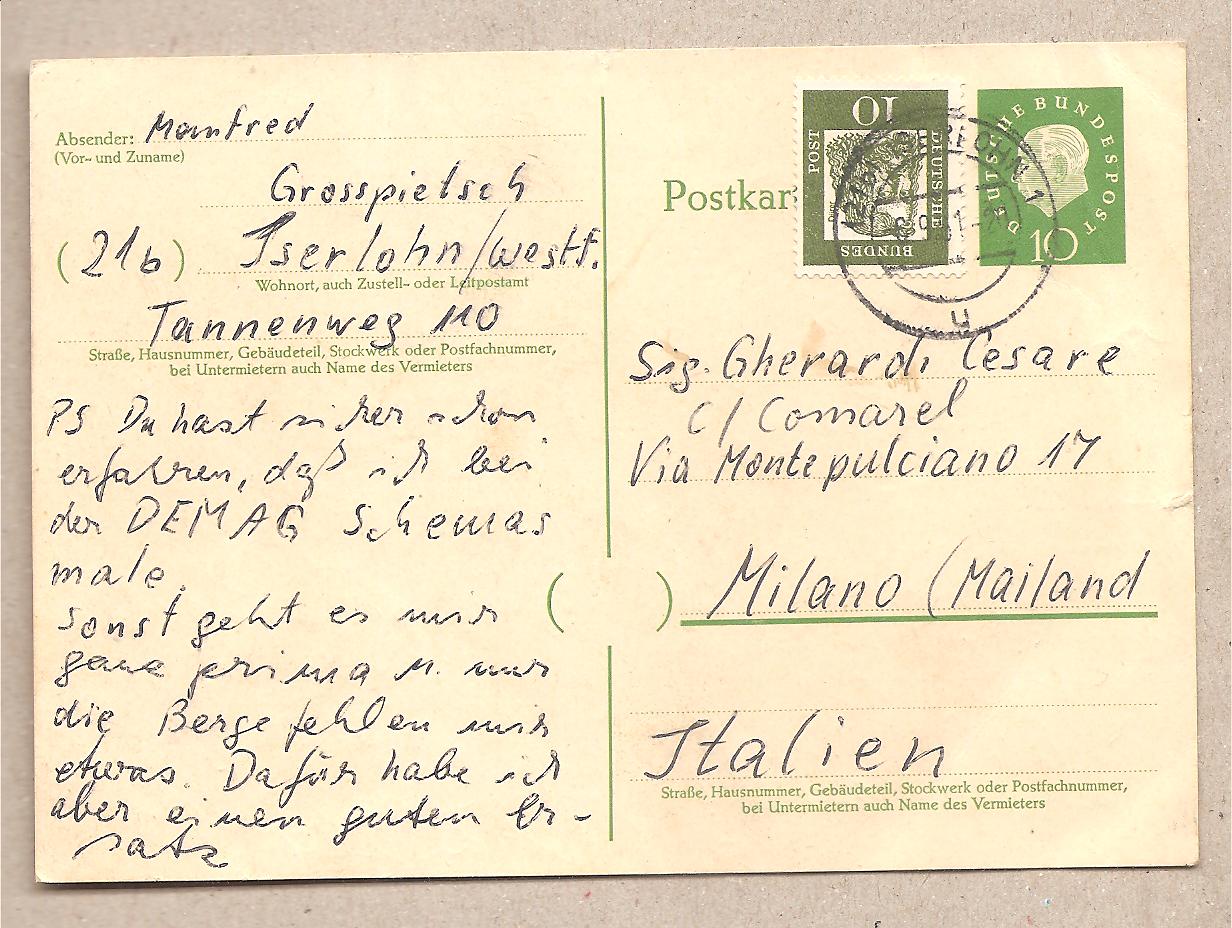 Absender: Manfred
(Vor- und Zuname)
Grosspietsch
(21b) Iserlohn/Westf.
Wohnort, auch Zustell- oder Leitpostamt
Tannenweg 110
Straße, Hausnummer, Gebäudeteil, Stockwerk oder Postfachnummer,
bei Untermietern auch Name des Vermieters
PS Du hast sicher schon
erfahren, daß ich bei
der DEMAG Schemas
male.
Sonst geht es mir
ganz prima u. nur
die Berge fehlen mir
etwas. Dafür habe ich
aber einen guten Er-
satz
Postkar
10
DEUTSCHE
BUNDES
POST
DEUTSCHE BUNDESPOST
10
ISERLOHN 1
u
Sig. Gherardi Cesare
c/ Comarel
Via Montepulciano 17
( ) Milano (Mailand
Italien
Straße, Hausnummer, Gebäudeteil, Stockwerk oder Postfachnummer,
bei Untermietern auch Name des Vermieters